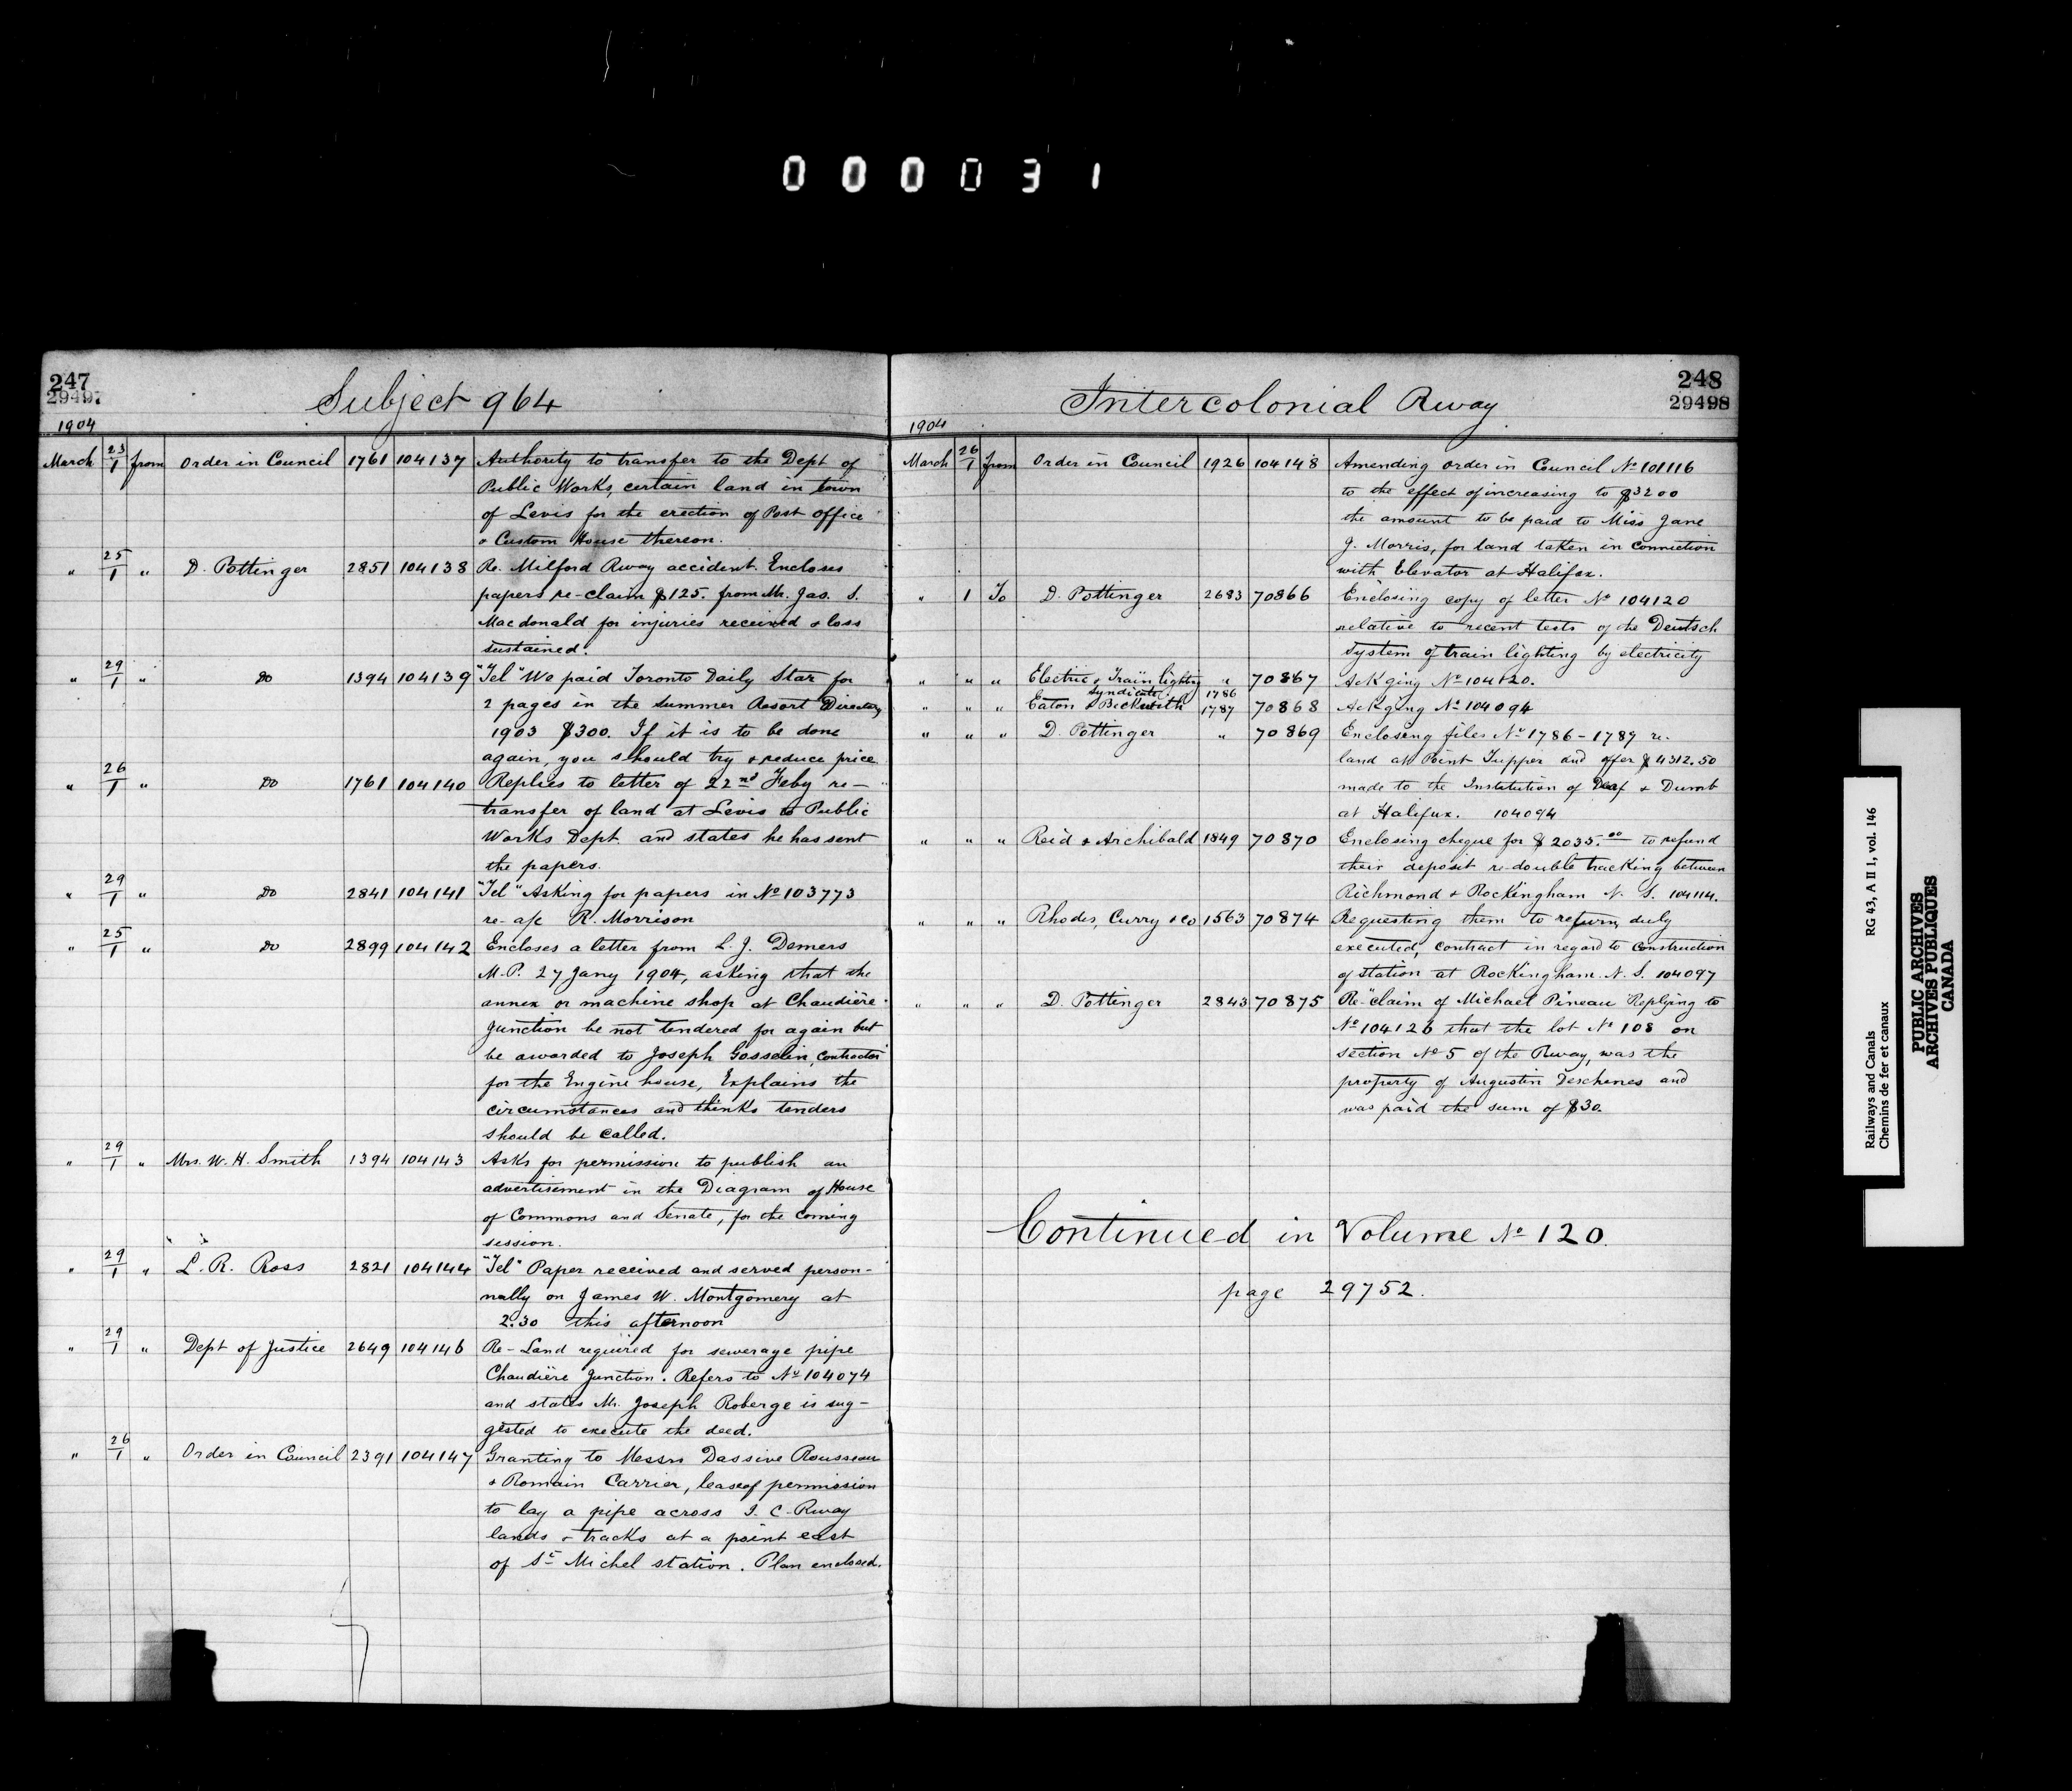 000031
247
29497
Subject 964
1904
March 23/1 from Order in Council 1761 104137 Authority to transfer to the Dept of
Public Works, certain land in town
of Levis for the erection of Post office
& Custom House thereon.
" 25/1 " D. Pottinger 2851 104138 Re. Milford Rway accident. Encloses
papers re-claim $125. from Mr. Jas. S.
Macdonald for injuries received & loss
sustained.
" 29/1 " Do 1394 104139 "Tel" We paid Toronto Daily Star for
2 pages in the Summer Resort Directory
1903 $300. If it is to be done
again, you should try & reduce price
" 26/1 " Do 1761 104140 Replies to letter of 22nd Feby re-
transfer of land at Levis to Public
Works Dept. and states he has sent
the papers.
" 29/1 " Do 2841 104141 "Tel" Asking for papers in No 103773
re- a/c R. Morrison
" 25/1 " Do 2899 104142 Encloses a letter from L. J. Demers
M.P. 27 Jany 1904, asking that the
annex or machine shop at Chaudière
Junction be not tendered for again but
be awarded to Joseph Gosselin, contractor
for the Engine house, Explains the
circumstances and thinks tenders
should be called.
" 29/1 " Mrs. W. H. Smith 1394 104143 Asks for permission to publish an
advertisement in the Diagram of House
of Commons and Senate, for the coming
session.
" 29/1 " L. R. Ross 2821 104144 "Tel" Paper received and served person-
nally on James W. Montgomery at
2.30 this afternoon
" 29/1 " Dept of Justice 2649 104146 Re-Land required for sewerage pipe
Chaudière Junction. Refers to No 104074
and states Mr. Joseph Roberge is sug-
gested to execute the deed.
" 26/1 " Order in Council 2391 104147 Granting to Messrs Dassive Rousseau
& Romain Carrier, lease of permission
to lay a pipe across I. C. Rway
lands & tracks at a point east
of St Michel station. Plan enclosed.
248
29498
Intercolonial Rway
1904
March 26/1 from Order in Council 1926 104148 Amending order in Council No 101116
to the effect of increasing to $3200
the amount to be paid to Miss Jane
J. Morris, for land taken in connection
with Elevator at Halifax.
" 1 To D. Pottinger 2683 70866 Enclosing copy of letter No 104120
relative to recent tests of the Deutsch
system of train lighting by electricity
" " " Electric & Train lighting " 70867 Ackging No 104120.
Syndicate
" " " Eaton & Beckwith 1786 1787 70868 Ackging No 104094
" " " D. Pottinger " 70869 Enclosing files No 1786-1789 re.
land at Point Tupper and offer $4312.50
made to the Institution of Deaf & Dumb
at Halifax. 104094
" " " Reid & Archibald 1849 70870 Enclosing cheque for $2035.00 to refund
their deposit re-double tracking between
Richmond & Rockingham N. S. 104114.
" " " Rhodes, Curry & Co 1563 70874 Requesting them to return, duly
executed, contract in regard to construction
of station at Rockingham. N. S. 104097
" " " D. Pottinger 2843 70875 Re-"claim of Michael Pineau" Replying to
No 104126 that the lot No 108 on
section No 5 of the Rway, was the
property of Augustin Deschenes and
was paid the sum of $30.
Continued in Volume No 120.
page 29752.
Railways and Canals RG 43, A II 1, vol. 146
Chemins de fer et canaux
PUBLIC ARCHIVES
ARCHIVES PUBLIQUES
CANADA